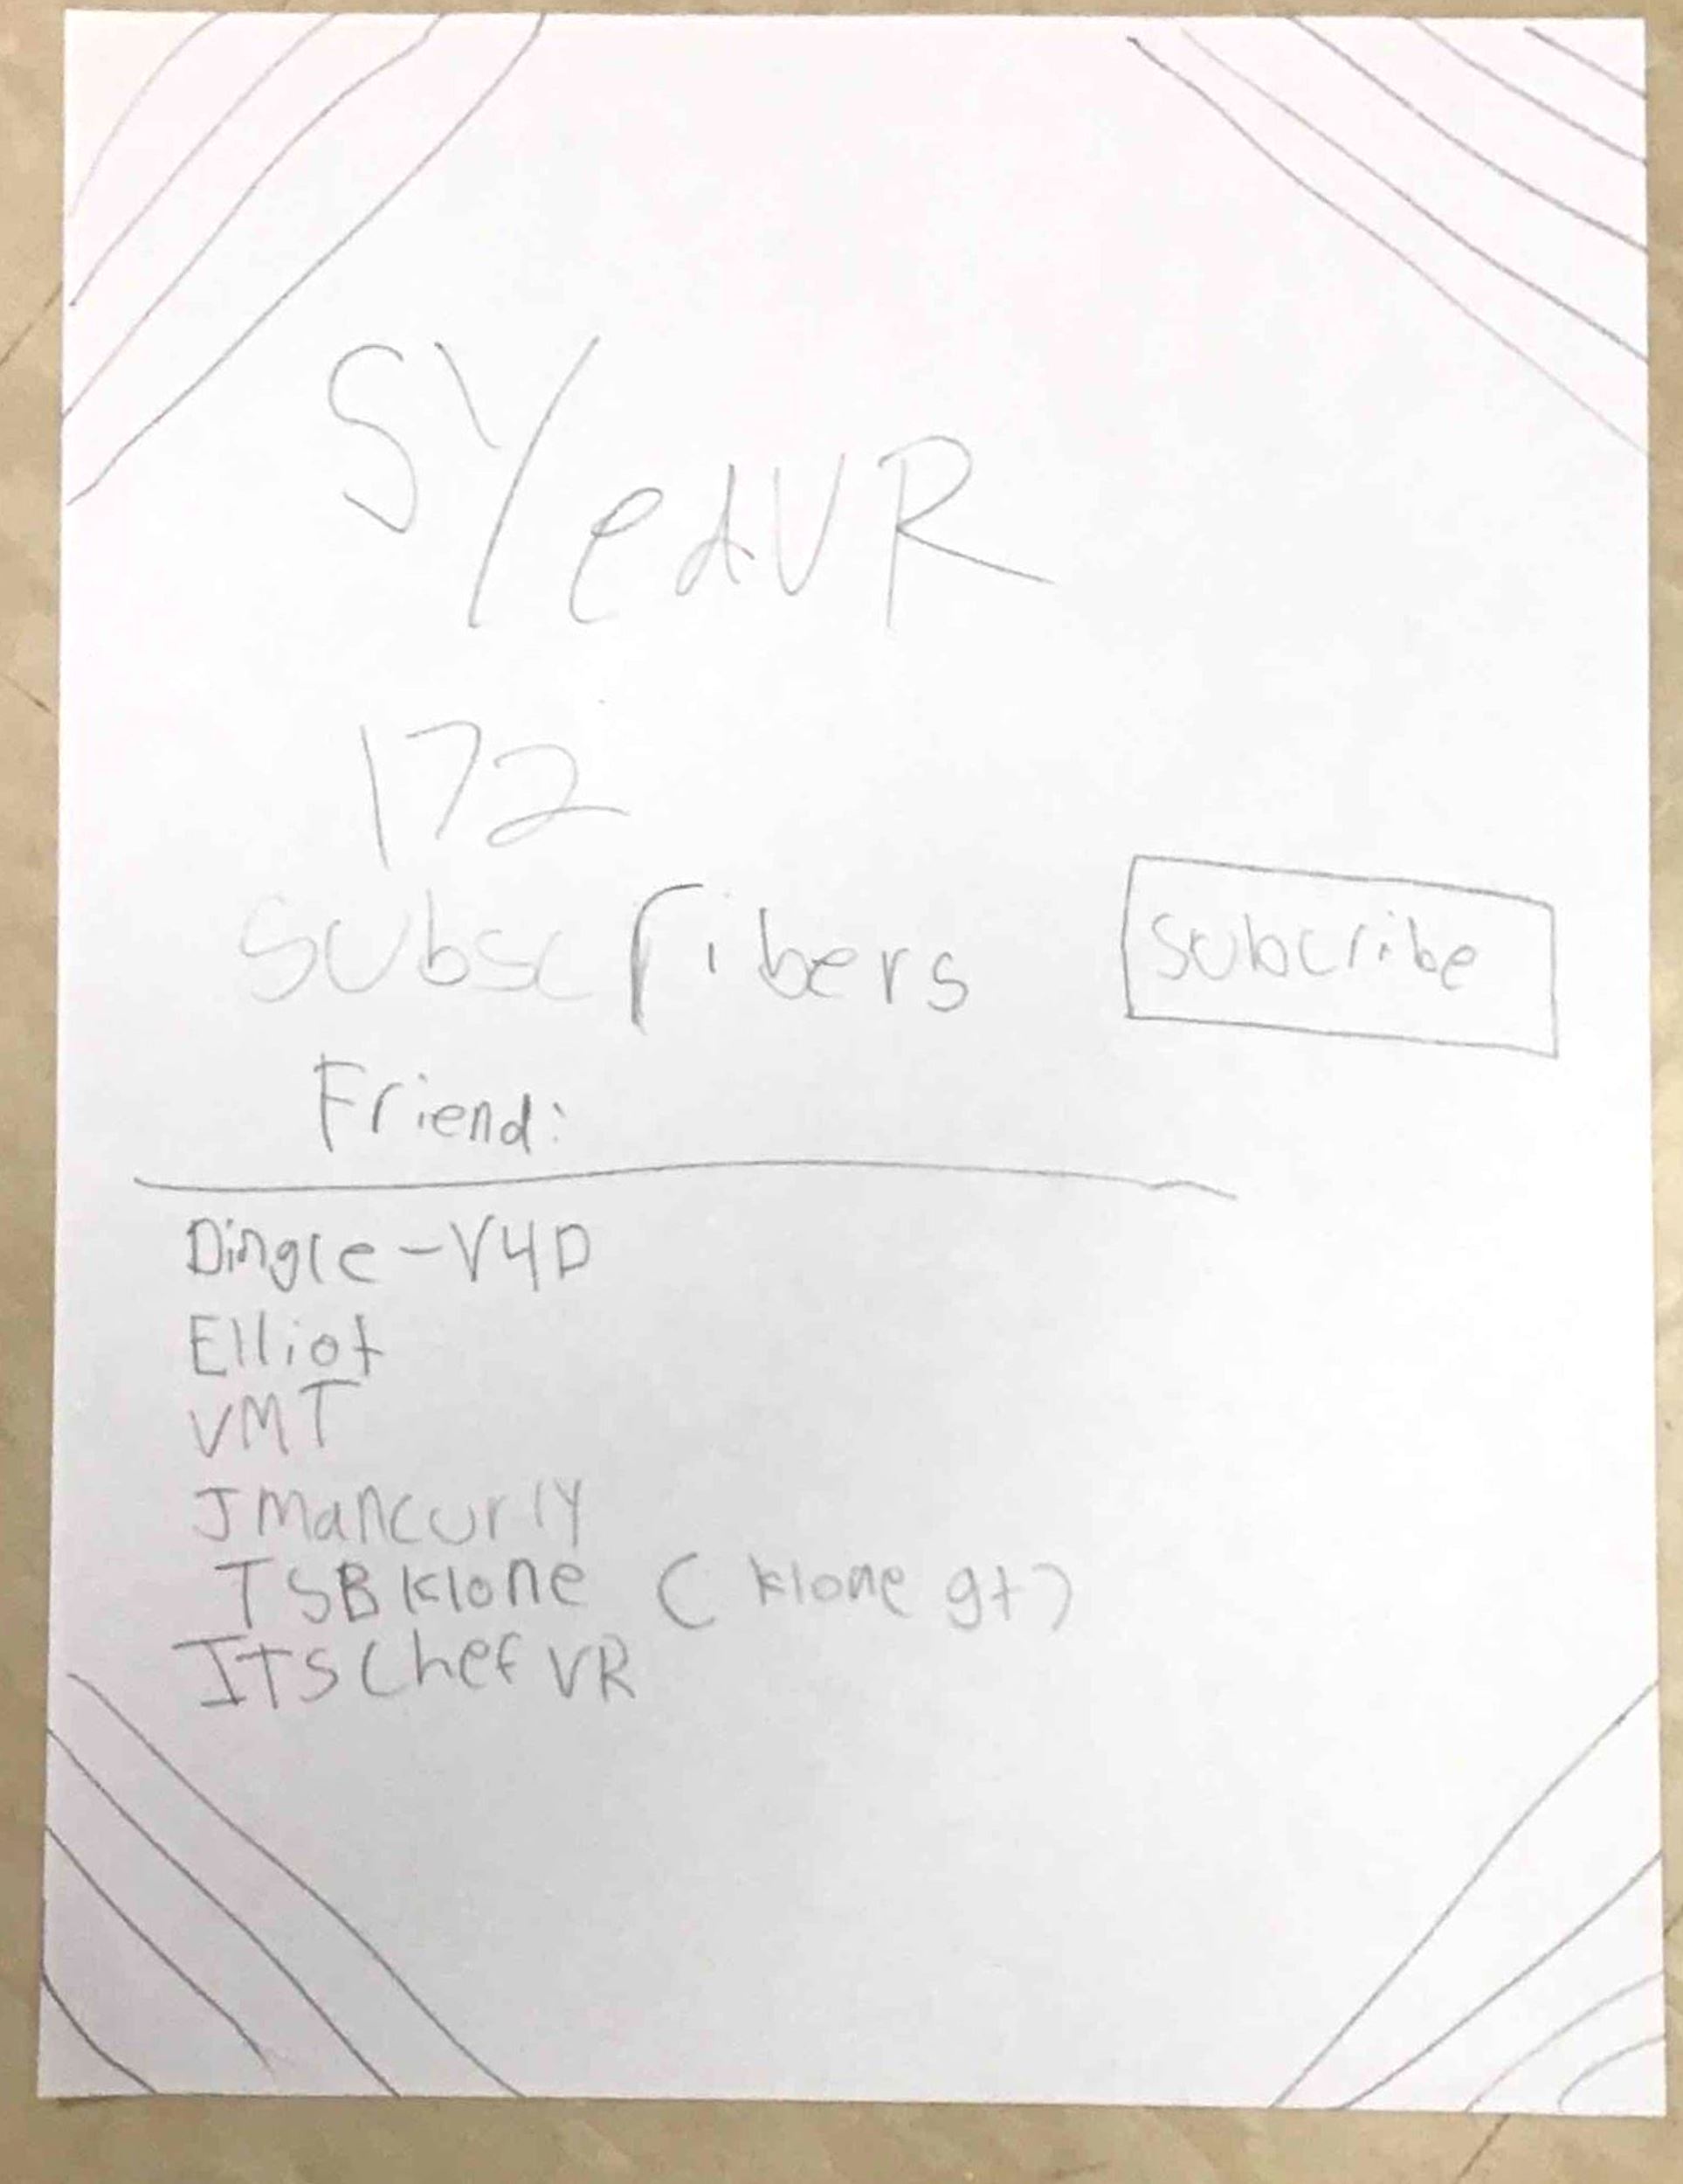 SYedVR
172
subscribers
subcribe
Friend:
Dingle-V4D
Elliot
VMT
Jmancurly
TSB Klone ( klone gt)
ITSChef VR